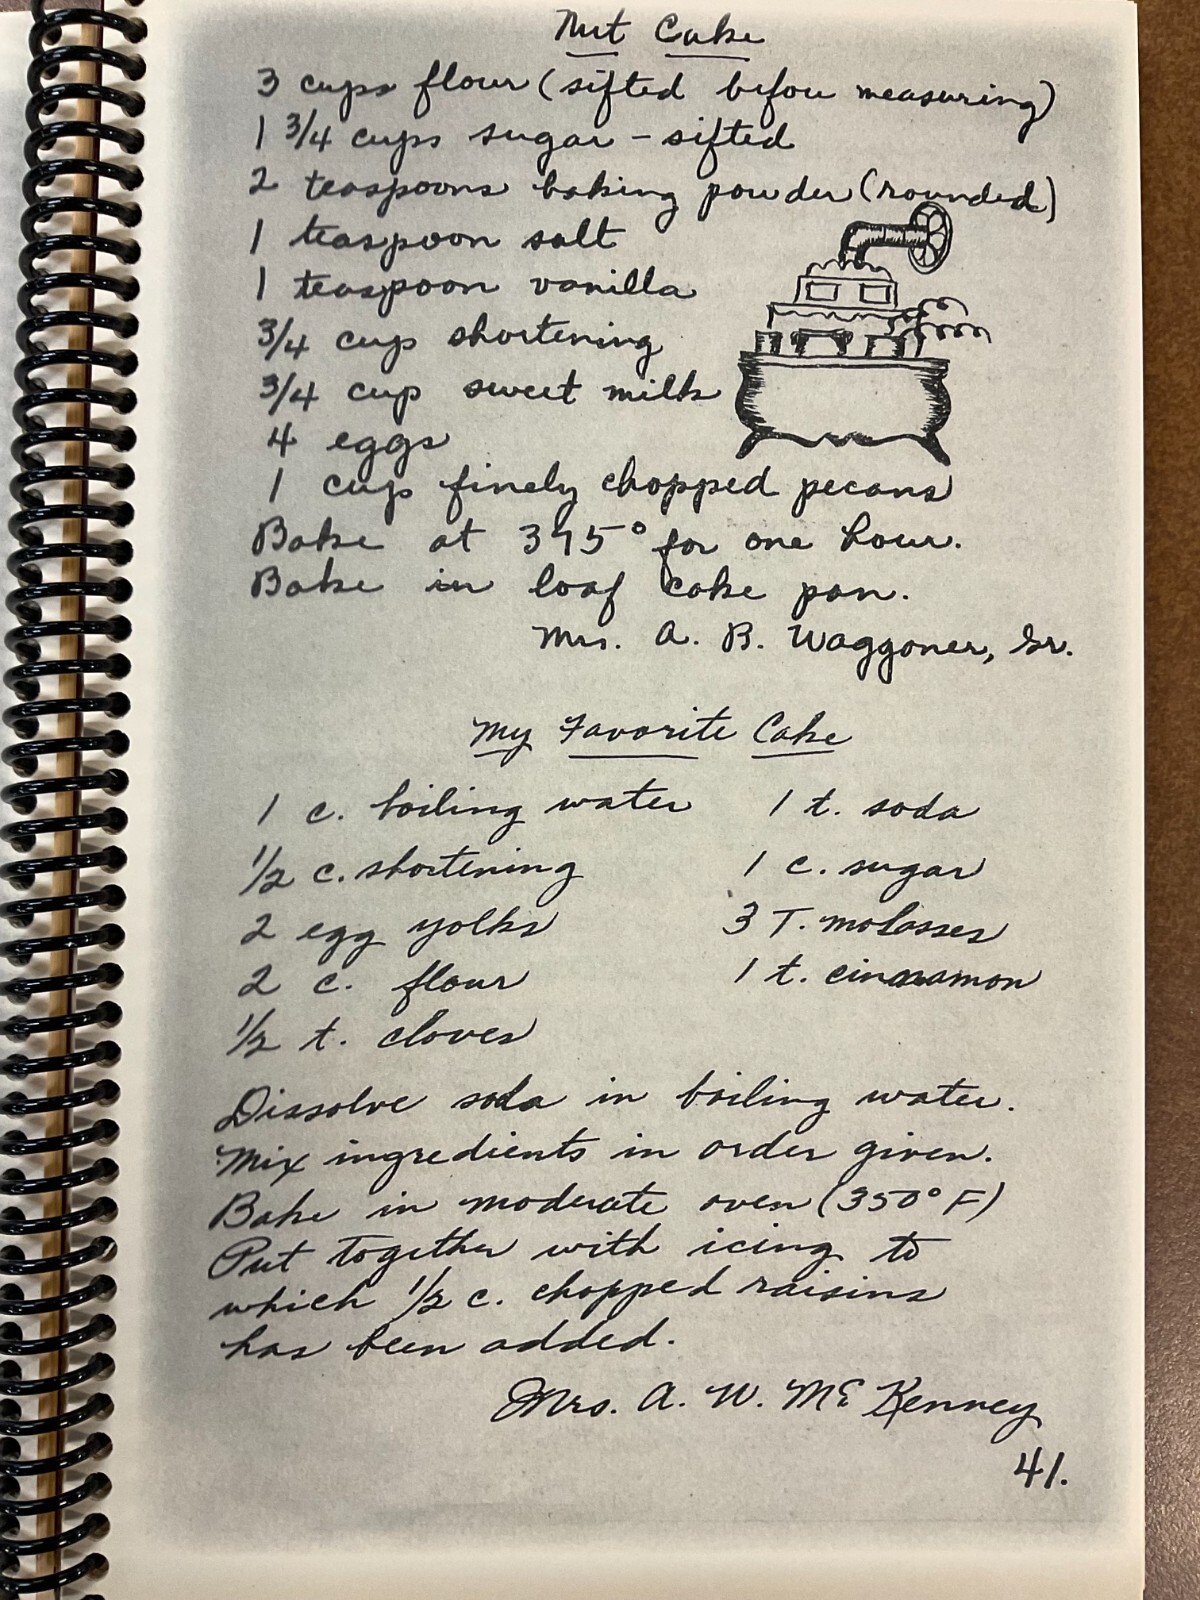 Nut Cake
3 cups flour (sifted before measuring)
1 3/4 cups sugar - sifted
2 teaspoons baking powder (rounded)
1 teaspoon salt
1 teaspoon vanilla
3/4 cup shortening
3/4 cup sweet milk
4 eggs
1 cup finely chopped pecans
Bake at 375° for one hour.
Bake in loaf cake pan.
Mrs. A. B. Waggoner, Sr.
My Favorite Cake
1 c. boiling water 1 t. soda
1/2 c. shortening 1 c. sugar
2 egg yolks 3 T. molasses
2 c. flour 1 t. cinnamon
1/2 t. cloves
Dissolve soda in boiling water.
Mix ingredients in order given.
Bake in moderate oven (350° F)
Put together with icing to
which 1/2 c. chopped raisins
has been added.
Mrs. A. W. McKenney
41.